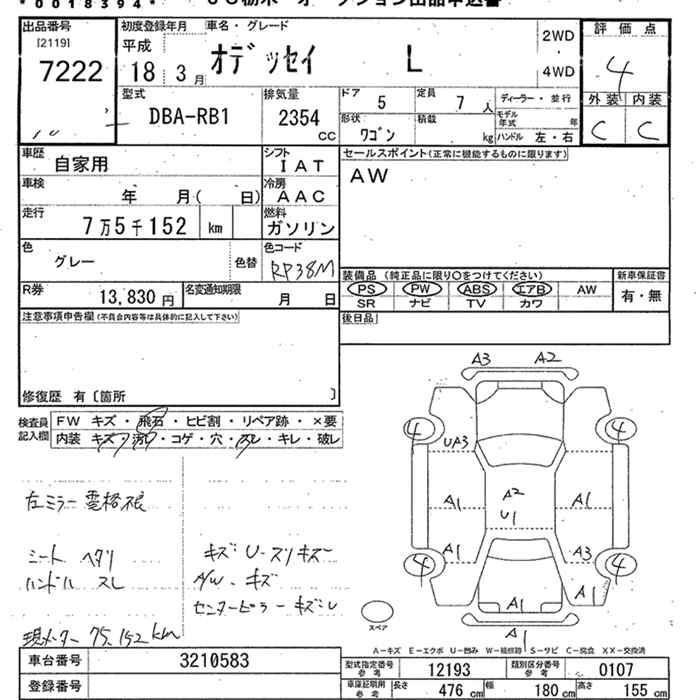 *0018394*
出品番号 初度登録年月 車名・グレード 2WD 評価点
[2119] 平成 オデッセイ L ・ 4
7222 18 3月 4WD 外装 内装
型式 排気量 ドア 5 定員 7人 ディーラー・並行 C C
DBA-RB1 2354 cc 形状 ワゴン 積載 kg モデル年式 年 ハンドル 左・右
車歴 自家用 シフト IAT セールスポイント(正常に機能するものに限ります)
車検 年 月( 日) 冷房 AAC AW
走行 7万5千152 km 燃料 ガソリン
色 グレー 色替 色コード RP38M
装備品 (純正品に限り○をつけてください) 新車保証書
PS PW ABS エアB AW 有・無
SR ナビ TV カワ
R券 13,830円 名変通知期限 月 日
注意事項申告欄(不具合内容等は具体的に記入して下さい) 後日品
修復歴 有〔箇所 〕
検査員記入欄 FW キズ・飛石・ヒビ割・リペア跡・×要
内装 キズ・汚れ・コゲ・穴・スレ・キレ・破レ
左ミラー 電格不良
シート ヘタリ
ハンドル スレ
キズ U-スリキズ
A/W キズ
センターピラー キズU
現メーター 75,152km
A3 A2
4 4
UA3
A2
A1 U1 A1
A1 A3
4 4
A1 A1
A1
スペア
A-キズ E-エクボ U-凹み W-補修跡 S-サビ C-腐食 XX-交換済
車台番号 3210583 型式指定番号 参考 12193 類別区分番号 参考 0107
登録番号 車庫証明用 参考 長さ 476cm 幅 180cm 高さ 155cm